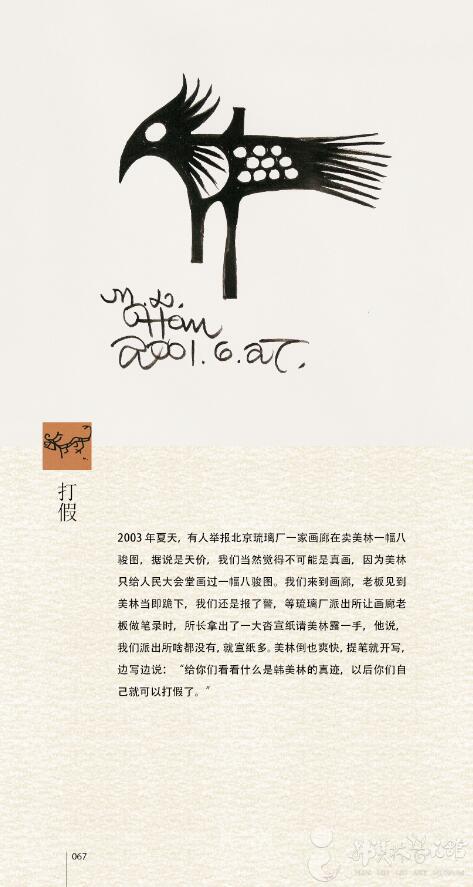 M.L.
Han
2001.6.27.
打假
2003 年夏天，有人举报北京琉璃厂一家画廊在卖美林一幅八
骏图，据说是天价，我们当然觉得不可能是真画，因为美林
只给人民大会堂画过一幅八骏图。我们来到画廊，老板见到
美林当即跪下，我们还是报了警，等琉璃厂派出所让画廊老
板做笔录时，所长拿出了一大沓宣纸请美林露一手，他说，
我们派出所啥都没有，就宣纸多。美林倒也爽快，提笔就开写，
边写边说：“给你们看看什么是韩美林的真迹，以后你们自
己就可以打假了。”
067
韩美林艺术馆
HAN MEI LIN ART MUSEUM